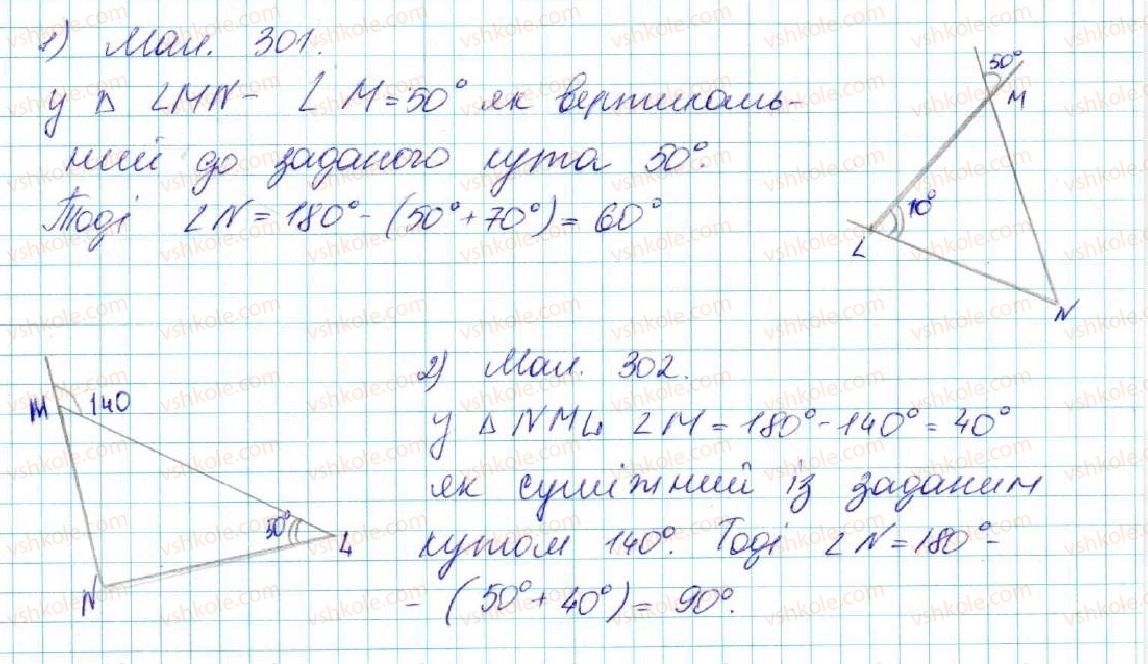 1) Мал. 301.
У Δ LMN - ∠M = 50° як вертикаль-
ний до заданого кута 50°.
Тоді ∠N = 180° - (50° + 70°) = 60°
50°
M
70°
L
N
2) Мал. 302.
M 140
У Δ NML ∠M = 180° - 140° = 40°
як суміжний із заданим
50°
L
кутом 140°. Тоді ∠N = 180° -
N
- (50° + 40°) = 90°.
vshkole.com